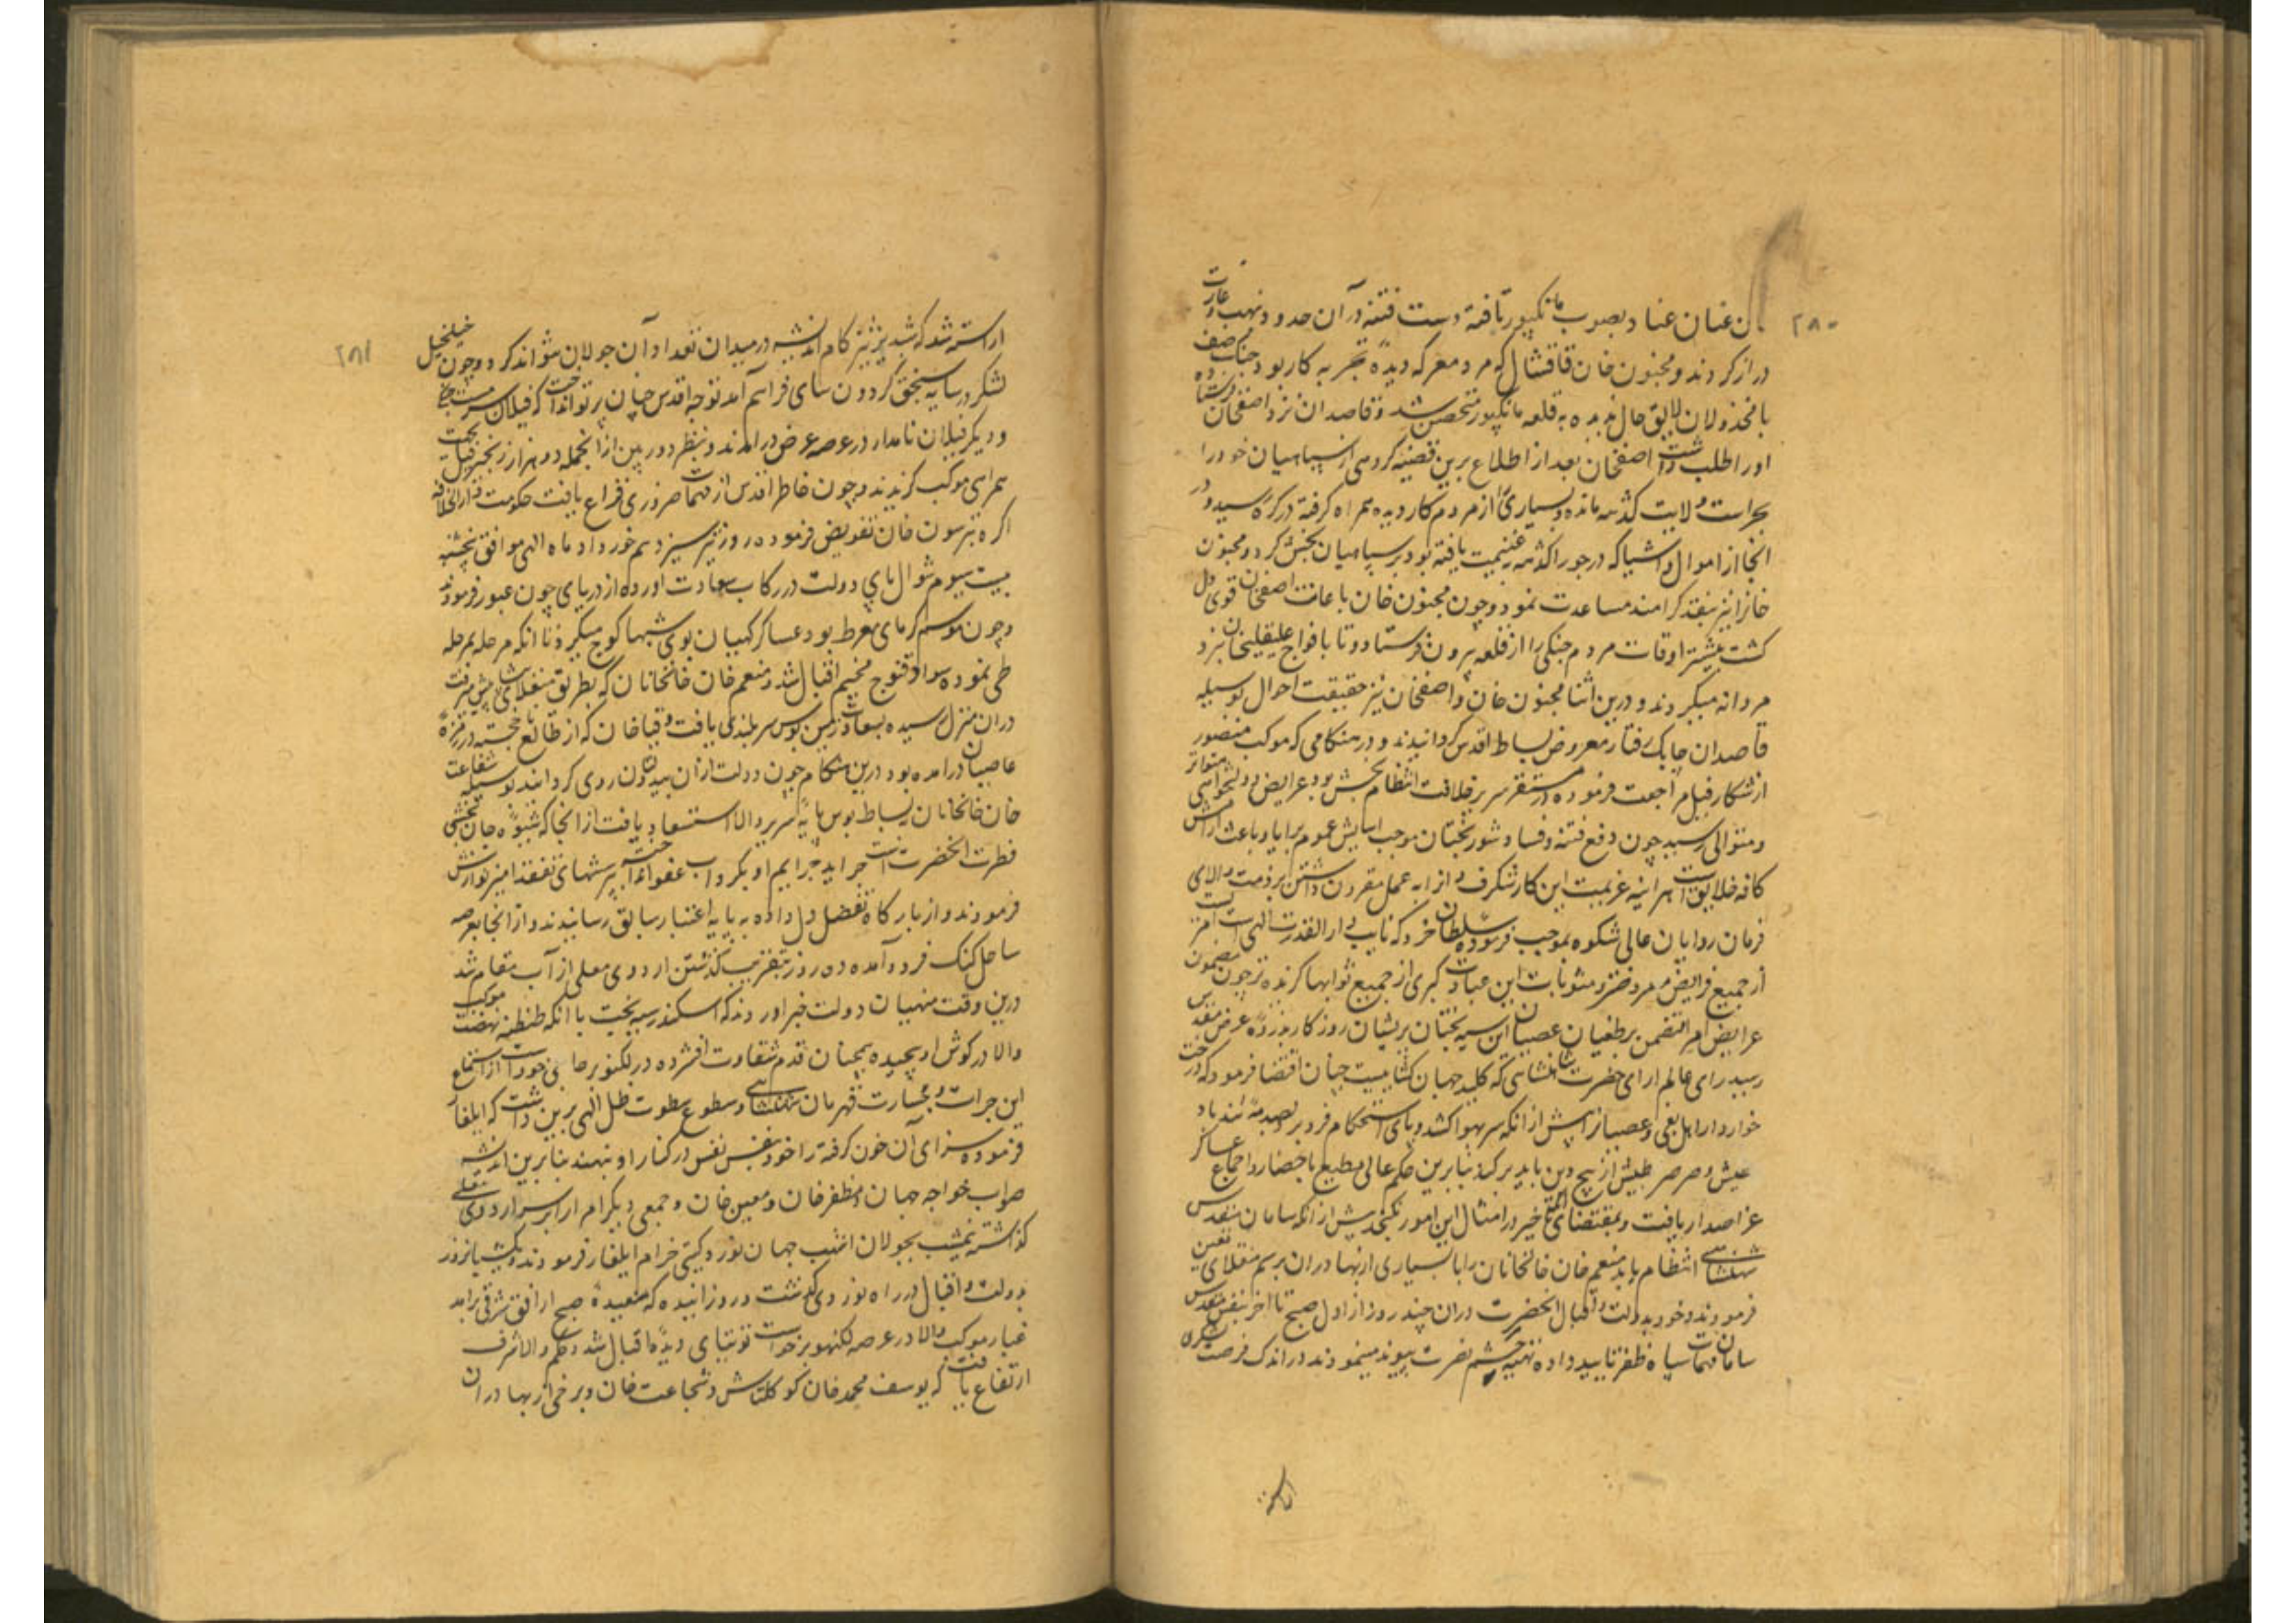 ۲۸۰
عنان عناد بصوب مانکپور تافته دست فتنه در آن حدود بنهب و غارت
دراز کردند و مجنون خان قاقشال که مرد معرکه دیده تجربه کار بود جنک صف
با مخذولان لایق حال ندیده به قلعه مانکپور متحصن شد و قاصدان نزد اصفخان فرستاده
او را طلب داشت اصفخان بعد از اطلاع برین قضیه کروهی از سپاهیان خود را
بحراست ولایت کدهه مانده و بسیاری از مردم کار دیده همراه کرفته در کره رسید و در
انجا از اموال و اشیا که در جوراکدهه غنیمت یافته بود بر سپاهیان بخش کرد و مجنون
خانرا نیز بنقد کرامند مساعدت نمود و چون مجنون خان باعانت اصفخان قوی دل
کشت بیشتر اوقات مردم جنکی را از قلعه بیرون فرستادی تا با افواج علیقلیخان نبرد
مردانه میکردند و درین اثنا مجنون خان و اصفخان نیز حقیقت احوال بوسیله
قاصدان چابک رفتار معروض بساط اقدس کردانیدند و در هنکامی که موکب منصور
از شکار فیل مراجعت فرموده در مستقر سریر خلافت انتظام بخش بود عرایض دولتخواهی متواتر
و متوالی رسید چون دفع فتنه و فساد شوربختان موجب اسایش عموم برایا و باعث ارامش
کافه خلایق است هر اینه عزیمت این کار شکرف را به عمل مقرون داشتن بر ذمت والای
فرمان روایان عالی شکوه بموجب فرموده سلطان خرد که نایب دار القدرت الهی است
از جمیع فرایض مفروضتر و مثوبات این عبادت کبری از جمیع ثوابها کزیده تر چون مضمون
عرایض امرا متضمن بر طغیان عصیان این سیه بختان پریشان روزکار بذروه عرض مقدس
رسید رای عالم ارای حضرت شاهنشاهی که کلید جهان کشاییست چنان اقتضا فرمود که درخت
خواردار اهل بغی و عصیان را پیش از انکه سر بهوا کشد و پای استحکام فرو برد بصدمه تندباد
عیش و صرصر طیش از بیخ و بن باید برکند بنابرین حکم عالی مطیع باحضار و اجماع عساکر
عز اصدار یافت و بمقتضای خیر در امثال این امور نکنجد پیش از انکه سامان مقدس
شهنشاهی انتظام یابد منعم خان خانخانان را با بسیاری از بهادران برسم منقلای تعین
فرمودند و خود بدولت و اقبال انحضرت دران چند روز از اول صبح تا اخر بنفس مقدس
سامان مهمات سپاه ظفر تایید داده تهیه حشم نصرت پیوند مینمودند در اندک فرصت لشکری
۲۸۱
اراسته شد که شبدیز تیز کام اندیشه در میدان تعداد آن جولان نتواند کرد و چون خیلخیل
لشکر در سایه سنجق کردون سای فراهم آمد توجه اقدس چنان پرتو انداخت که فیلان مست جنکی
و دیکر فیلان نامدار در عرصه عرض درامدند و بنظر دوربین از انجمله دو هزار زنجیر فیل بجهت
همراهی موکب کزیدند و چون خاطر اقدس از مهمات ضروری فراغ یافت حکومت دارالخلافه
اکره بترسون خان تفویض فرموده روز تیر سیزدهم خورداد ماه الهی موافق پنجشنبه
بیست سیوم شوال پای دولت در رکاب سعادت آورده از دریای چون عبور فرمودند
و چون موسم کرمای مفرط بود عساکر کیهان پوی شبها کوچ میکردند تا انکه مرحله بمرحله
طی نموده سواد قنوج مخیم اقبال شد و منعم خان خانخانان که بطریق منقلای پیش میرفت
دران منزل رسیده بسعادت زمین بوس سربلندی یافت و قیاخان که از طالع ناخجسته در زمره
عاصیان درامده بود درین هنکام چون دولت ازان بیدولتان روی کردانید بوسیله شفاعت
خان خانخانان بساط بوس پایه سریر والا استسعاد یافت از انجا که شیوه جان بخشی
فطرت انحضرت است جراید جرایم او بکرداب عفو انداخته بپرسشهای تفقد امیز نوازش
فرمودند و از بارکاه تفضل دل داده به پایه اعتبار سابق رسانیدند و از انجا بعرصه
ساحل کنک فرود آمده ده روز بتقریب کذشتن اردوی معلی از آب مقام شد
درین وقت منهیان دولت خبر اوردند که اسکندر سیه بخت با انکه طنطنه نهضت موکب
والا در کوش او پیچیده همچنان قدم شقاوت افشرده در لکنو بر جای خود است از استماع
این جرات و جسارت قهرمان شهنشاهی و سطوع سطوت ظل الهی برین داشت که ایلغار
فرموده سزای آن خون کرفته را خود بنفس نفیس در کنار او بنهند بنابرین اندیشه
صواب خواجه جهان و مظفرخان و معین خان و جمعی دیکر امرا را بر سر اردوی معلی
کذاشته نیمشب بجولان اشهب جهان نورد کیتی خرام ایلغار فرمودند و یکشبانروز
بدولت و اقبال در راه نوردی کذشت و روز انیده که سفیده صبح از افق شرقی برامد
غبار موکب والا در عرصه لکنهو برخواست توتیای دیده اقبال شد و حکم والا شرف
ارتفاع یافت که یوسف محمد خان کوکلتاش و شجاعت خان و برخی از بهادران